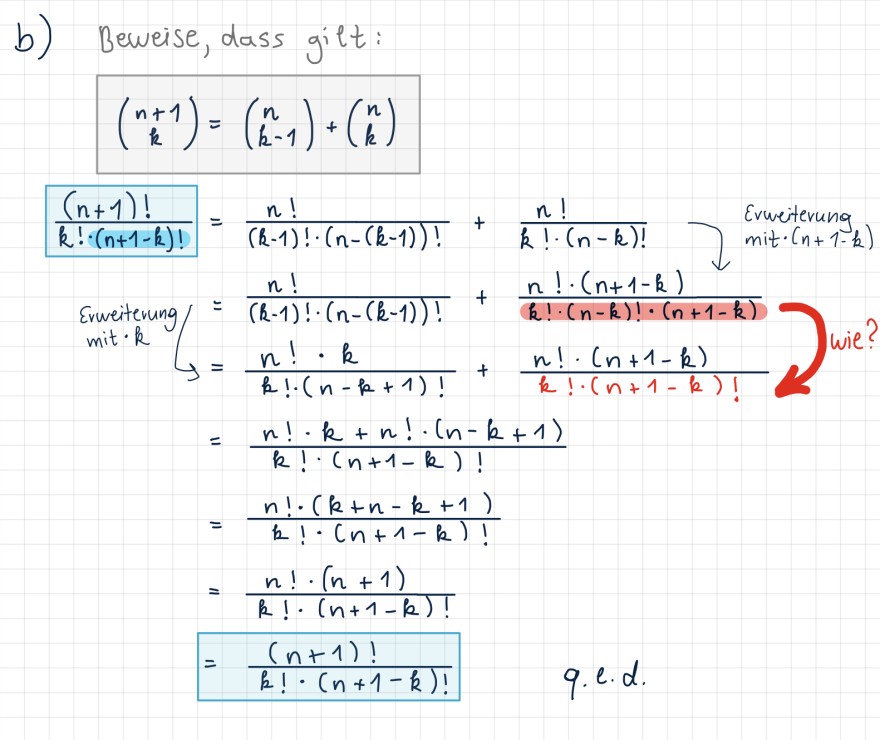 b) Beweise, dass gilt:
(n+1 k) = (n k-1) + (n k)
(n+1)! / k!·(n+1-k)! = n! / (k-1)!·(n-(k-1))! + n! / k!·(n-k)!
Erweiterung
mit·(n+1-k)
= n! / (k-1)!·(n-(k-1))! + n!·(n+1-k) / k!·(n-k)!·(n+1-k)
Erweiterung
mit·k
wie?
= n!·k / k!·(n-k+1)! + n!·(n+1-k) / k!·(n+1-k)!
= n!·k + n!·(n-k+1) / k!·(n+1-k)!
= n!·(k+n-k+1) / k!·(n+1-k)!
= n!·(n+1) / k!·(n+1-k)!
= (n+1)! / k!·(n+1-k)!
q.e.d.